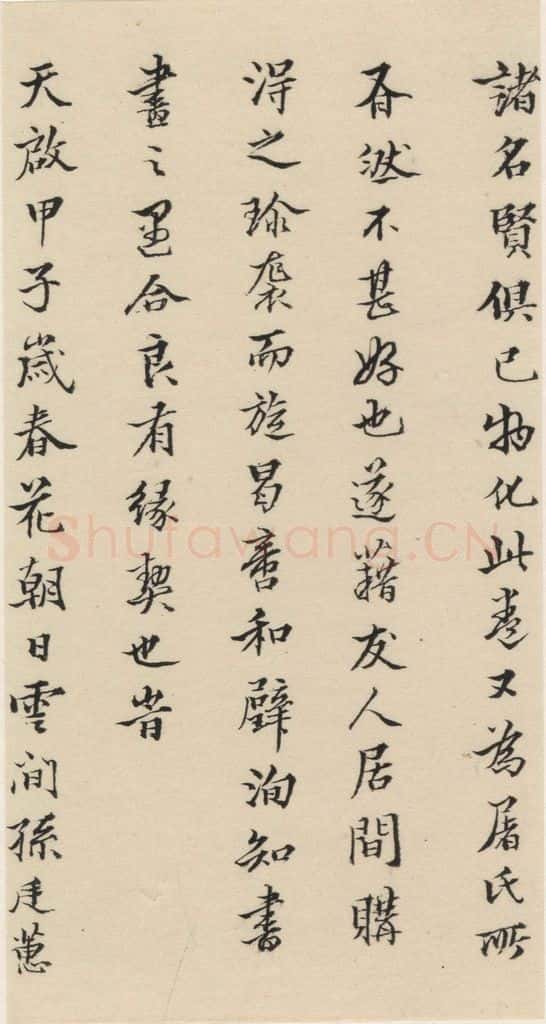 諸名賢俱已物化此卷又為屠氏所
有然不甚好也遂藉友人居間購
得之珍襲而旋曷啻和璧洵知書
畫之遇合良有緣契也昔
天啟甲子歲春花朝日雲間孫廷蕙
Shufawang.CN